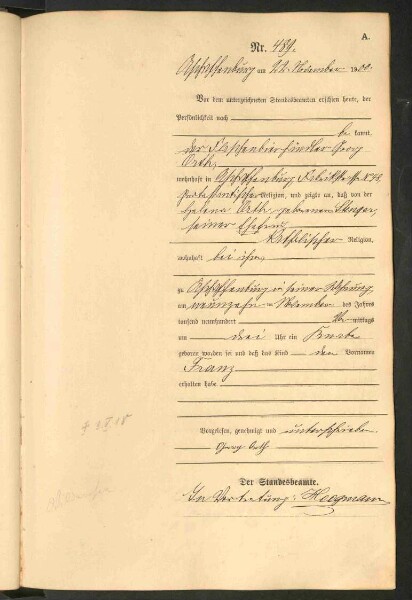 A.
Nr. 489.
Aschaffenburg am 22. November 1900.
Vor dem unterzeichneten Standesbeamten erschien heute, der
Persönlichkeit nach
be kannt,
der Flaschenbierhändler Georg
Orth,
wohnhaft in Aschaffenburg
protestantischer Religion, und zeigte an, daß von der
Helena Orth geborenen Stenger,
seiner Ehefrau,
katholischer Religion,
wohnhaft bei ihm,
zu Aschaffenburg in seiner Wohnung,
am neunzehnten November des Jahres
tausend neunhundert mittags
um drei Uhr ein Knabe
geboren worden sei und daß das Kind den Vornamen
Franz
erhalten habe
Vorgelesen, genehmigt und unterschrieben
Georg Orth
Der Standesbeamte.
In Vertretung: